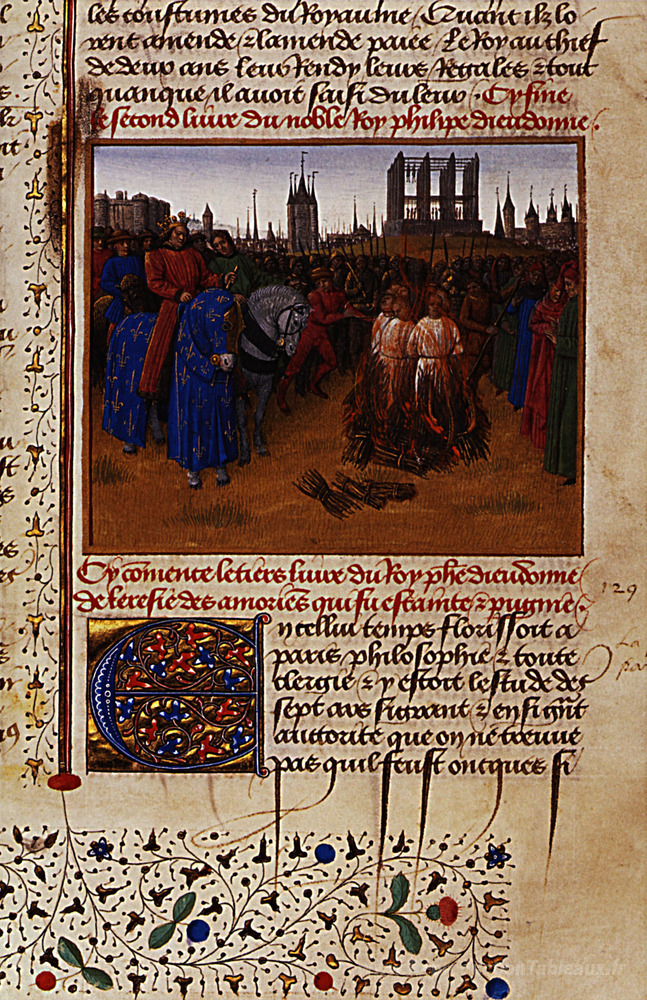 les coustumes du Royaume. Quant ilz lo
rent amende & lamende paiee. Le Roy au chief
de deux ans leur Rendy leurs Regales & tout
quanque il avoit saisi du leur. Cy fine
le second livre du noble Roy philipe dieudonne.
Cy cōmence le tiers livre du Roy phē dieudonne
de leresie des amoriēs qui fu estainte & pugnie.
129
En cellui temps florissoit a
paris philosophie & toute
clergie & y estoit lestude des
sept ars si grant & en si grāt
auctorite que on ne treuve
pas quil feust oncques si